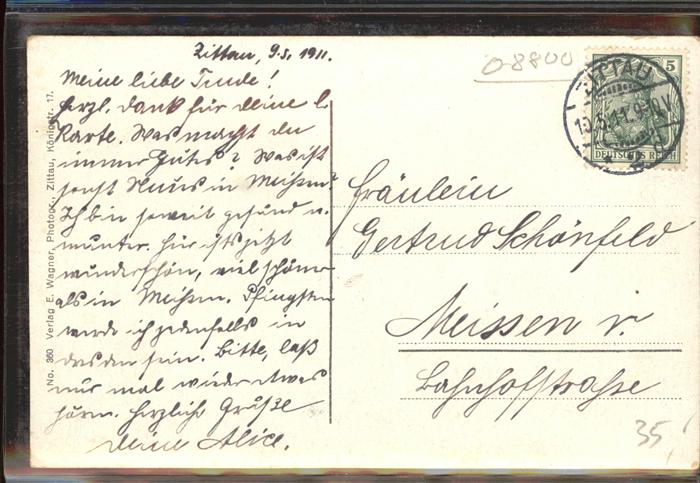 Zittau, 9.5.1911.
Meine liebe Trude!
Herzl. Dank für deine l.
Karte. Was macht du
immer Gutes? Was ist
sonst Neues in Meißen?
Ich bin soweit gesund u.
munter. Hier ists jetzt
wunderschön, viel schöner
als in Meißen. Pfingsten
werde ich jedenfalls in
Dresden sein. Bitte, laß
nur mal wieder etwas
hören. Herzliche Grüße
deine Alice.
No. 360 Verlag E. Wagner, Photogr., Zittau, Königstr. 17.
08800
5
DEUTSCHES REICH
ZITTAU
Fräulein
Gertrud Schönfeld
Meissen
Bahnhofstraße
35,